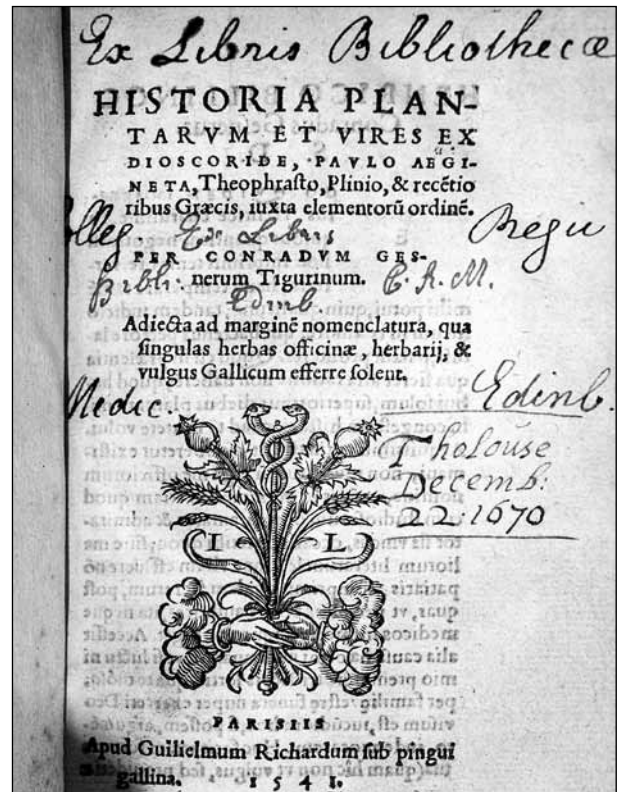 Ex Libris Bibliothecæ
HISTORIA PLAN-
TARVM ET VIRES EX
DIOSCORIDE, PAVLO AEGI-
NETA, Theophrasto, Plinio, & recẽtio
ribus Græcis, iuxta elementorũ ordinẽ.
olleg. Ex Libris Regii
PER CONRADVM GES-
nerum Tigurinum.
Bibli: C. R. M.
Edinb.
Adiecta ad marginẽ nomenclatura, qua
singulas herbas officinæ, herbarij, &
vulgus Gallicum efferre solent.
Medic. Edinb.
Tholouse
Decemb:
22: 1670
I L
PARISIIS
Apud Guilielmum Richardum sub pingui
gallina. 1541.